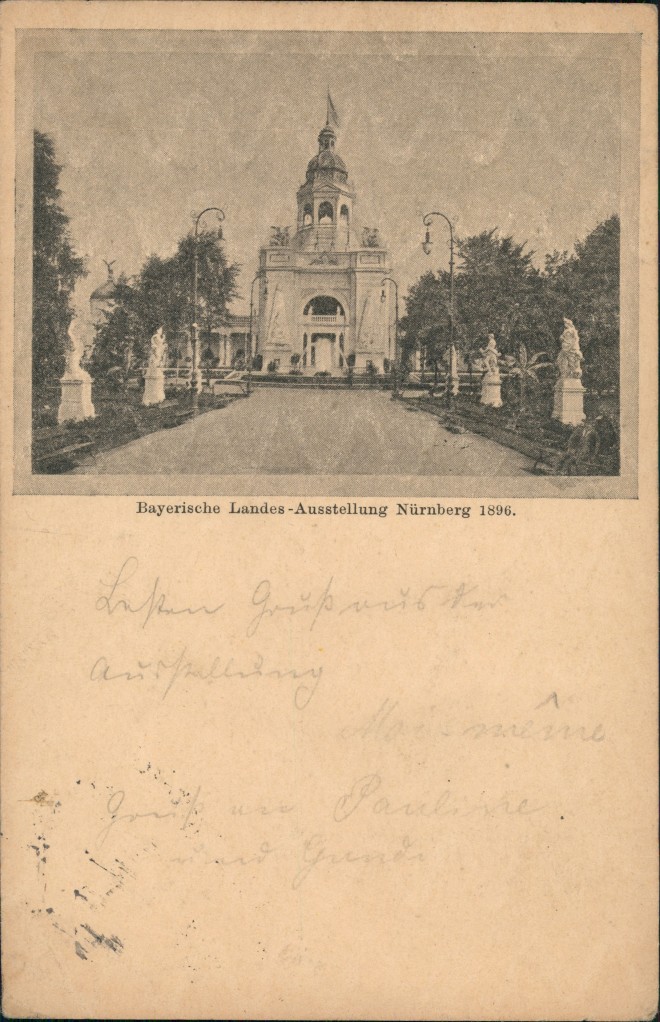 Bayerische Landes-Ausstellung Nürnberg 1896.
Besten Gruß aus der
Ausstellung
Moi-même
Gruß an Pauline
und